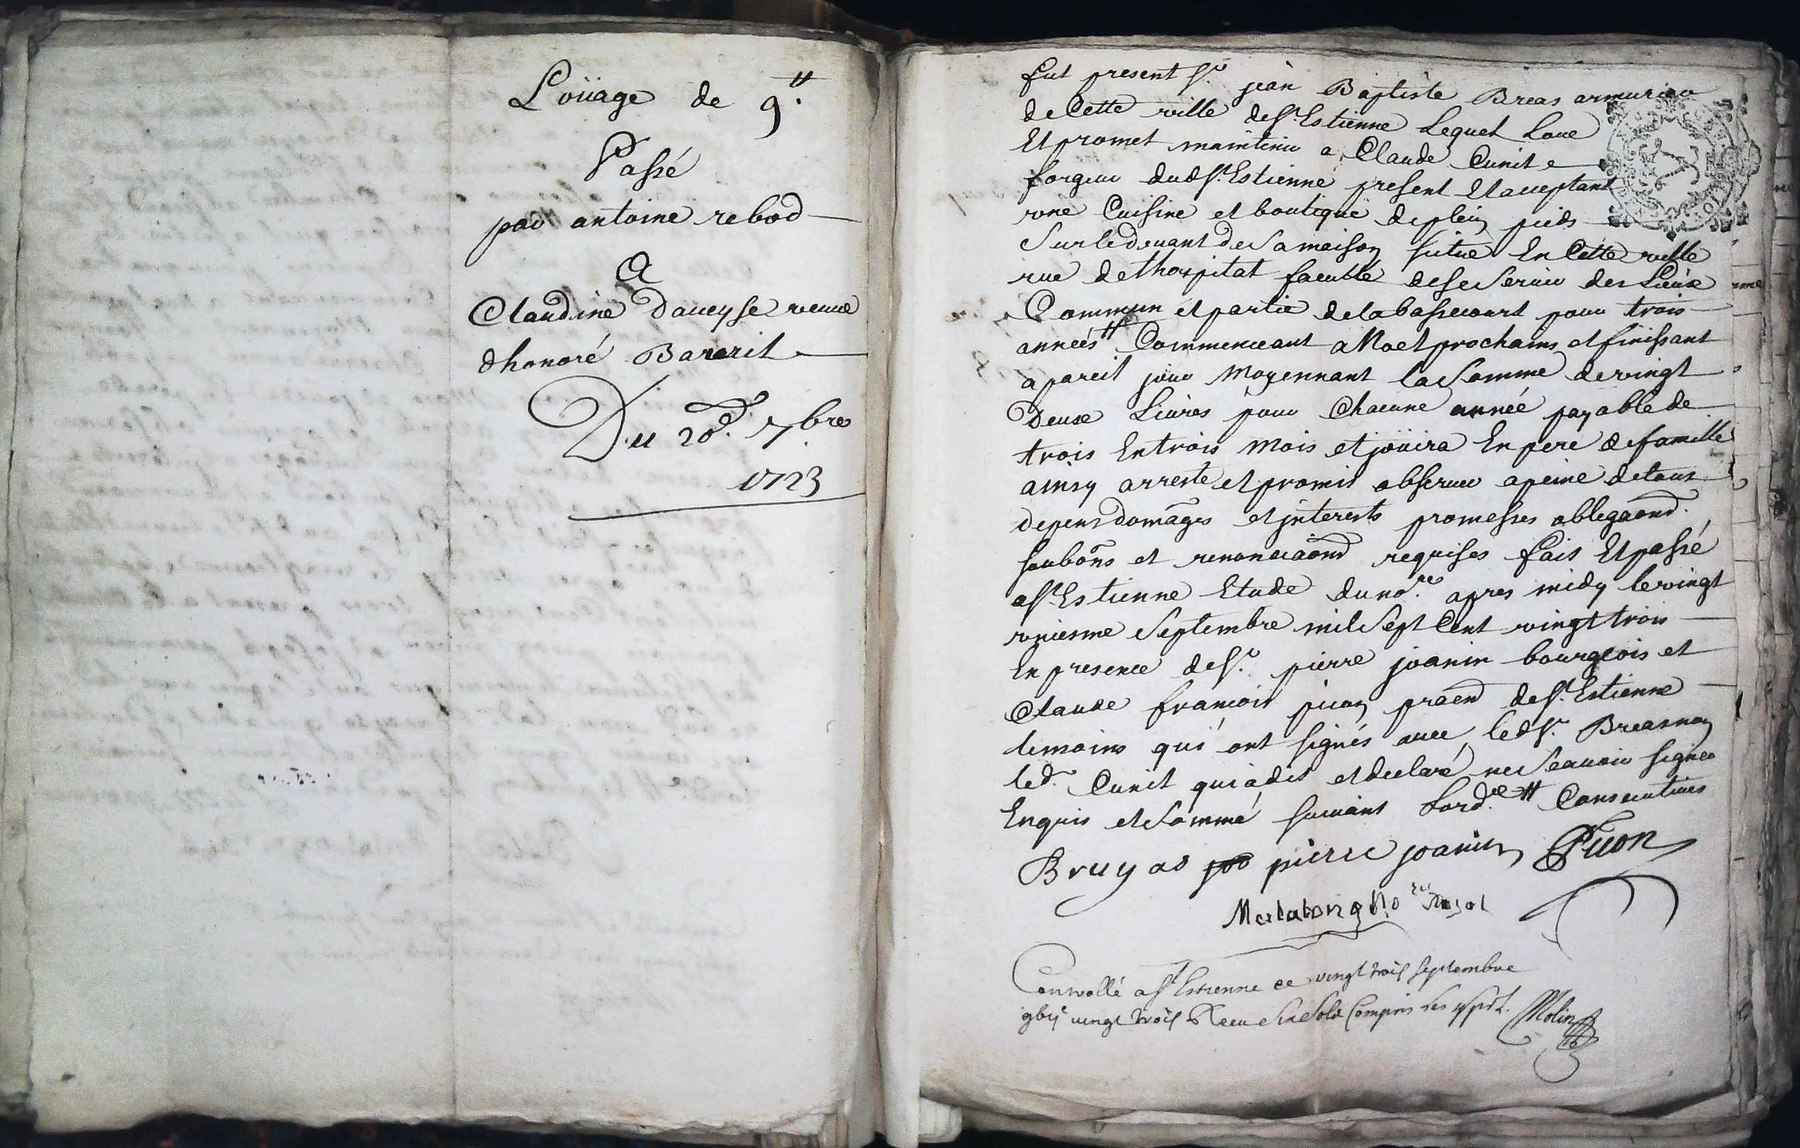 Loüage de 9.ʰ
Passé
par antoine rebod
A
Claudine Daveyse veuve
dhonoré Bararit
Du 20.e 7bre
1723
fut present Sr. jean Baptiste Breas armurier
de Cette ville de St. Estienne Lequel Loue
Et promet maintenir a Claude Cunit
forgeur dud St. Estienne present et acceptant
une Cuisine et boutique de plein pieds
Sur le devant de Sa maison situé En Cette ville
rue de lhospital faculté de se servir des Lieux
Commun et partie de la bassecourt pour trois
années # Commenceant a Noel prochains et finissant
a pareil jour Moyennant la Somme de vingt
Deuse Livres pour Chacune année payable de
trois En trois Mois et joüira En pere de famille
ainsy arresté et promis observer a peine de tous
depens domages et jnterests promesses obligaond.
soubons et renonciaond requises fait Et passé
a St. Estienne Etude du no.re apres midy le vingt
uniesme Septembre mil Sept Cent vingt trois
En presence de Sr. pierre joanin bourgeois et
Claude francois picon praend de St. Estienne
temoins qui ont signés avec led Sr. Breas non
led. Cunit qui a dit et declaré ne Scavoir signer
Enquis et Sommé suivant Lord.ce # Consecutives
Bruyas pierre joanin Picon
No.re Royal
Controllé a St Estienne ce vingt trois septembre
vingt trois Receu Six Sols Compris les Molin